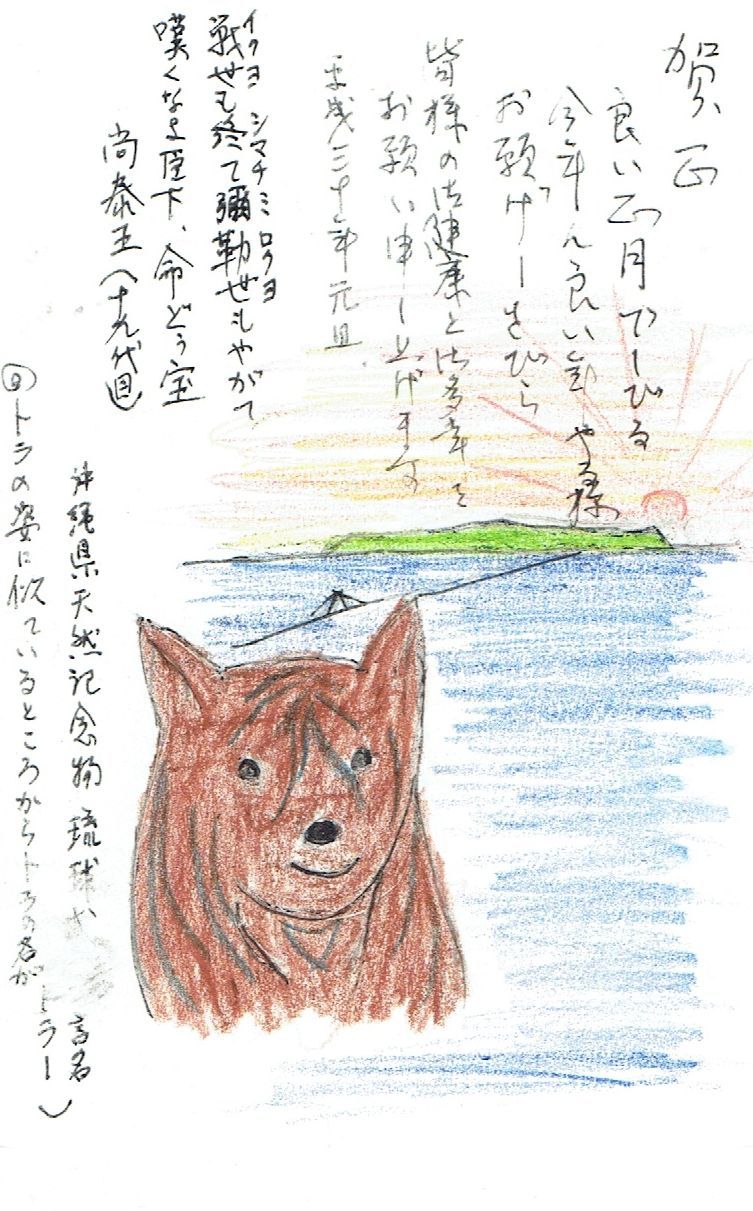 賀正
良い正月でーびる
今年ん良い年やる様
お願げーさびら
皆様の御健康と御多幸を
お願い申し上げます
平成三十年元旦
イクサヨ シマチ ミロクヨ
戦世も終て彌勒世もやがて
嘆くなよ臣下、命どぅ宝
尚泰王(十九代目)
沖縄県天然記念物 琉球犬 方言名 トラー
トラの姿に似ているところからトラの名が